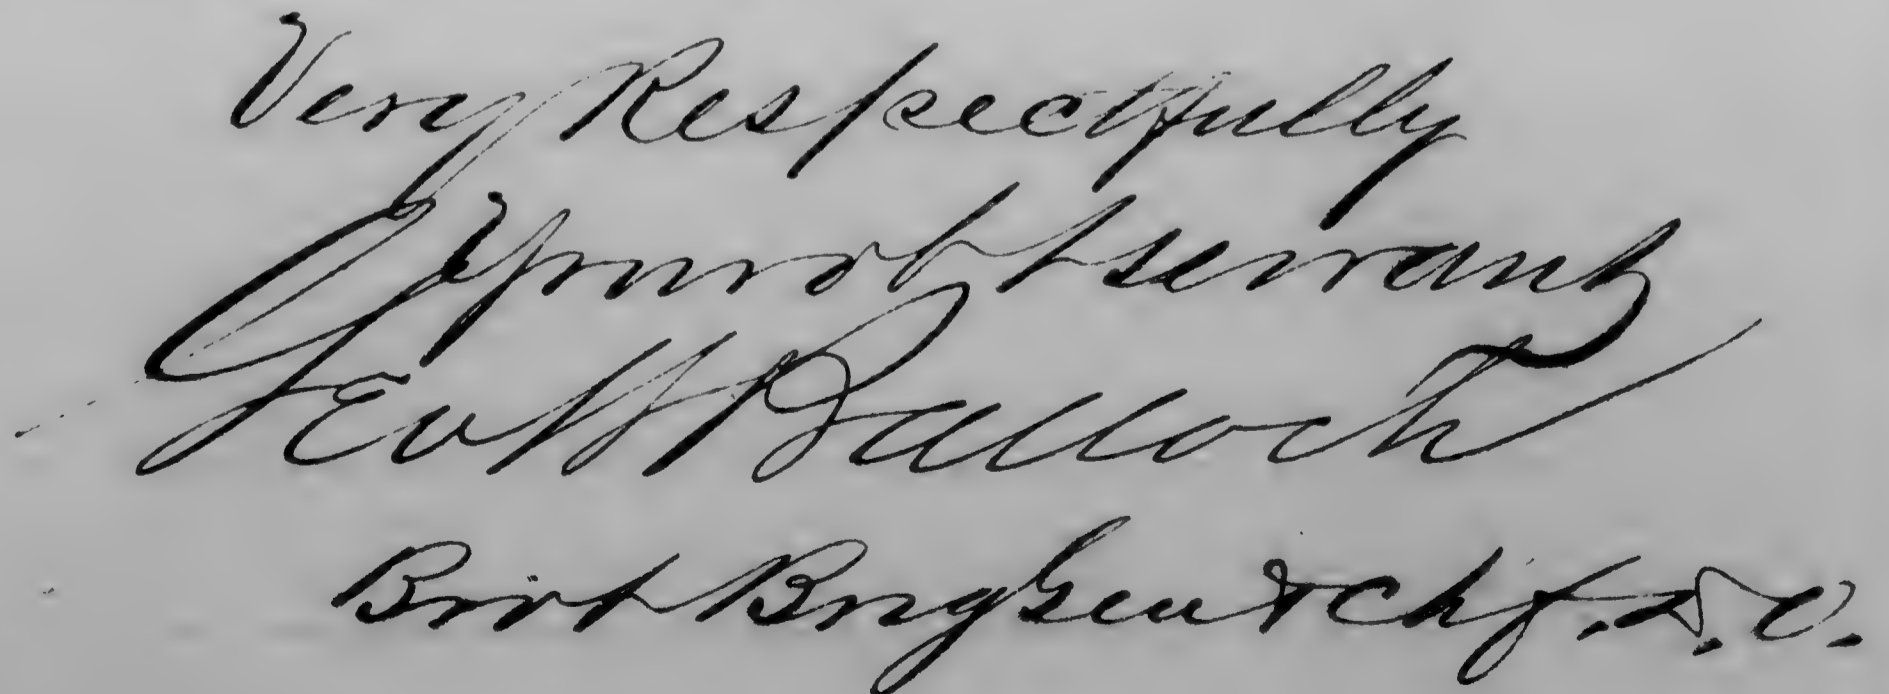 Very Respectfully
Your obt servant
Geo W Balloch
Bvt Brig Gen & Ch f. D. O.